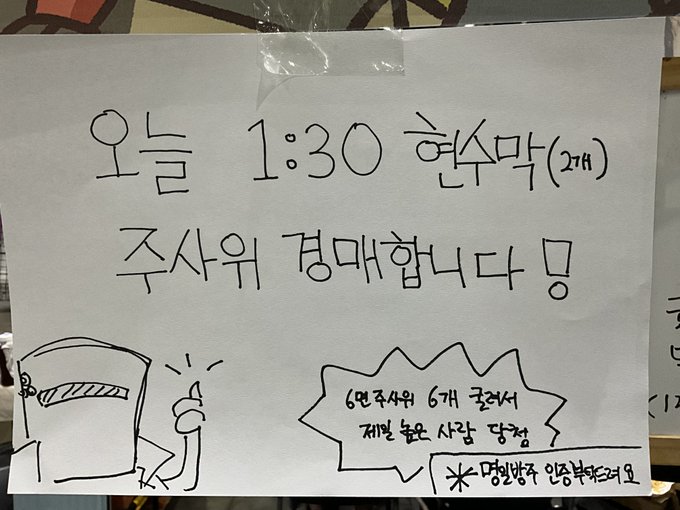 오늘 1:30 현수막(2개)
주사위 경매합니다!
6면주사위 6개 굴려서
제일 높은 사람 당첨
※ 명일방주 인증부탁드려요